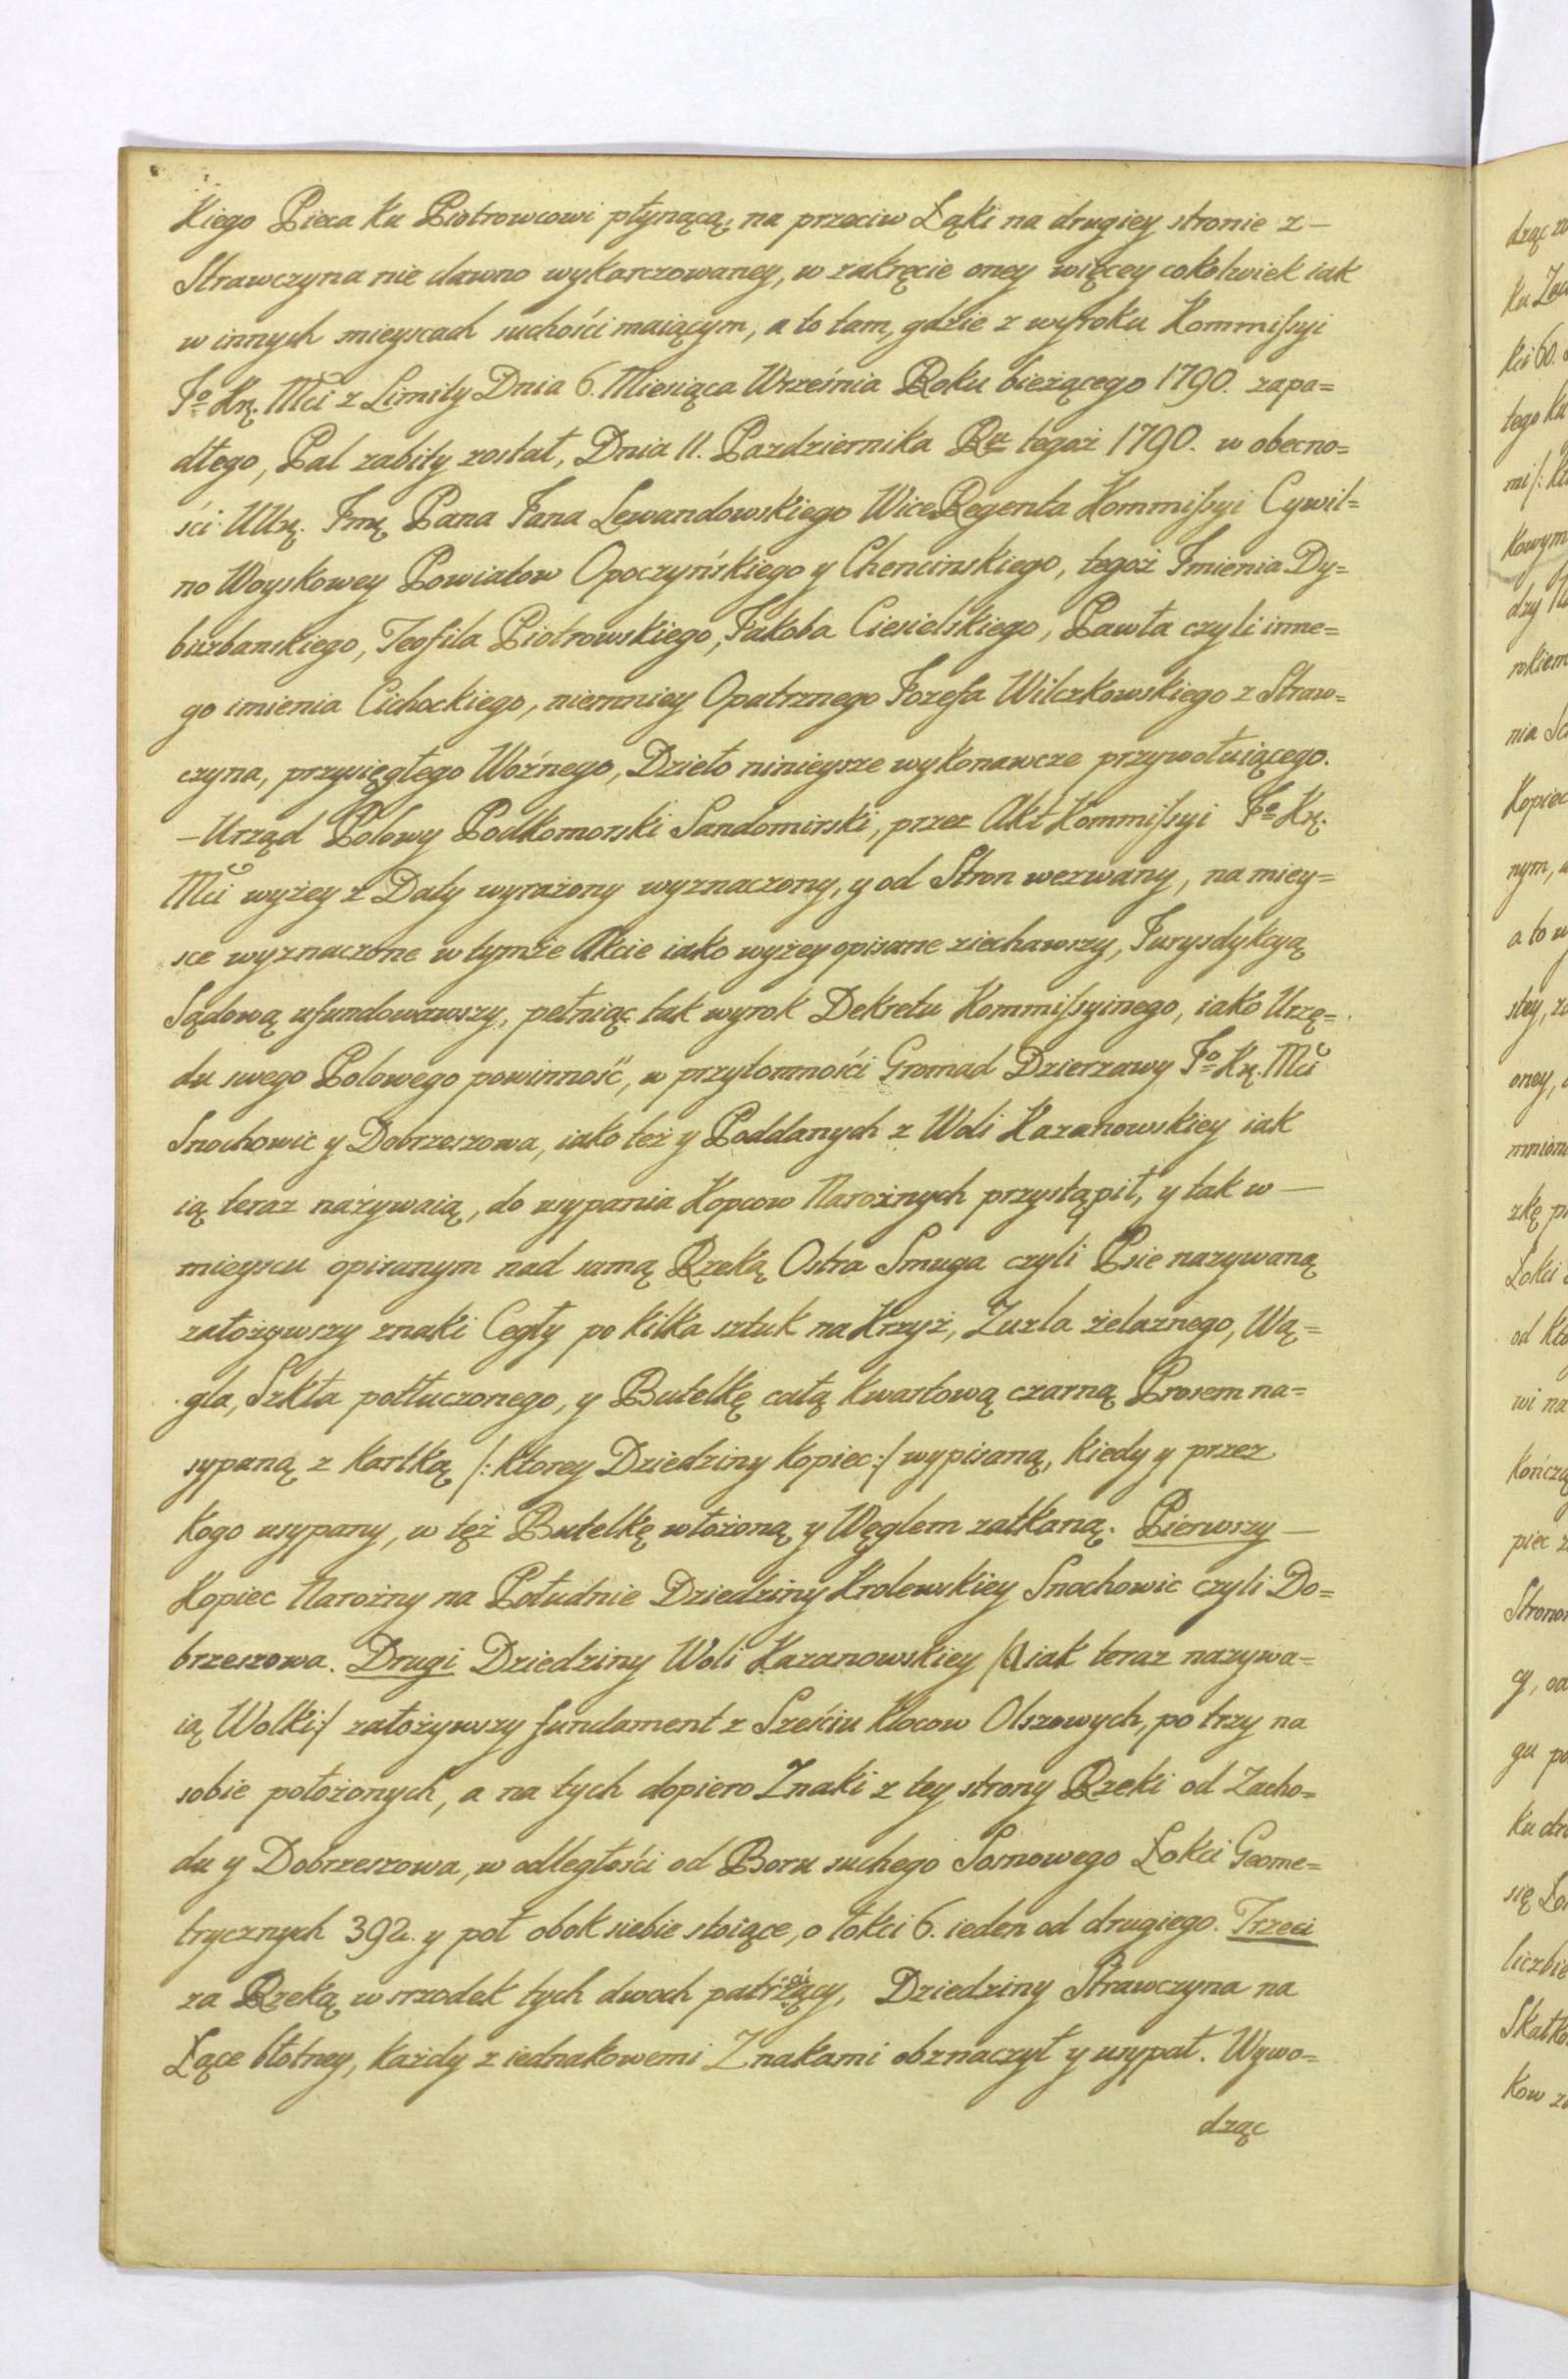 kiego Pieca ku Piotrowcowi płynącą, na przeciw Łąki na drugiey stronie z —
Strawczyna nie dawno wykarczowaney, w zakręcie oney więcey cokolwiek iak
w innych mieyscach suchości maiącym, a to tam, gdzie z wyroku Kommissyi
Jº Kr. Mci z Limity Dnia 6. Miesiąca Września Roku bieżącego 1790. zapa=
dłego, Pal zabity został, Dnia 11. Pazdziernika Ru tegoż 1790. w obecno=
ści Urz. Jmę Pana Jana Lewandowskiego WiceRegenta Kommissyi Cywil=
no Woyskowey Powiatow Opoczyńskiego y Chencinskiego, tegoż Jmienia Dy=
burbanskiego, Teofila Piotrowskiego, Jakoba Ciesielskiego, Pawła czyli inne=
go imienia Cichockiego, niemniey Opatrznego Jozefa Wilczkowskiego z Straw=
czyna, przysięgłego Woźnego, Dzieło ninieysze wykonawcze przywołuiącego.
— Urząd Polowy Podkomorski Sandomirski, przez Akt Kommissyi Jº Kr.
Mci wyżey z Daty wyrażony wyznaczony, y od Stron wezwany, na miey=
sce wyznaczone w tymże Akcie iako wyżey opisane ziechawszy, Jurysdykcyą
Sądową ufundowawszy, pełniąc tak wyrok Dekretu Kommissyinego, iako Urzę=
du swego Polowego powinność, w przytomności Gromad Dzierzawy Jº Kr. Mci
Snochowic y Dobrzeszowa, iako też y Poddanych z Woli Kazanowskiey iak
ią teraz nażywaią, do usypania Kopcow Narożnych przystąpił, y tak w —
mieyscu opisanym nad samą Rzeką Ostra Smuga czyli Psie nazywaną
założywszy znaki Cegły po kilka sztuk na Krzyż, Zuzla żelaznego, Wą=
gla, Szkła potłuczonego, y Butelkę całą kwartową czarną Prosem na=
sypaną z kartką /: ktorey Dziedziny kopiec :/ wypisaną, kiedy y przez
kogo usypany, w tęż Butelkę włożoną y Węglem zatkaną. Pierwszy —
Kopiec Narożny na Południe Dziedziny Krolewskiey Snochowic czyli Do=
brzeszowa. Drugi Dziedziny Woli Kazanowskiey /a iak teraz nazywa=
ią Wolki:/ założywszy fundament z Sześciu Klocow Olszowych, po trzy na
sobie położonych, a na tych dopiero Znaki z tey strony Rzeki od Zacho=
du y Dobrzeszowa, w odległości od Boru suchego Sosnowego Łokci Geome=
trycznych 392. y poł obok siebie stoiące, o łokci 6. ieden od drugiego. Trzeci
za Rzeką, w srzodek tych dwoch patrzący, Dziedziny Strawczyna na
Łące błotney, każdy z iednakowemi Znakami obznaczył y usypał. Wywo=
dząc